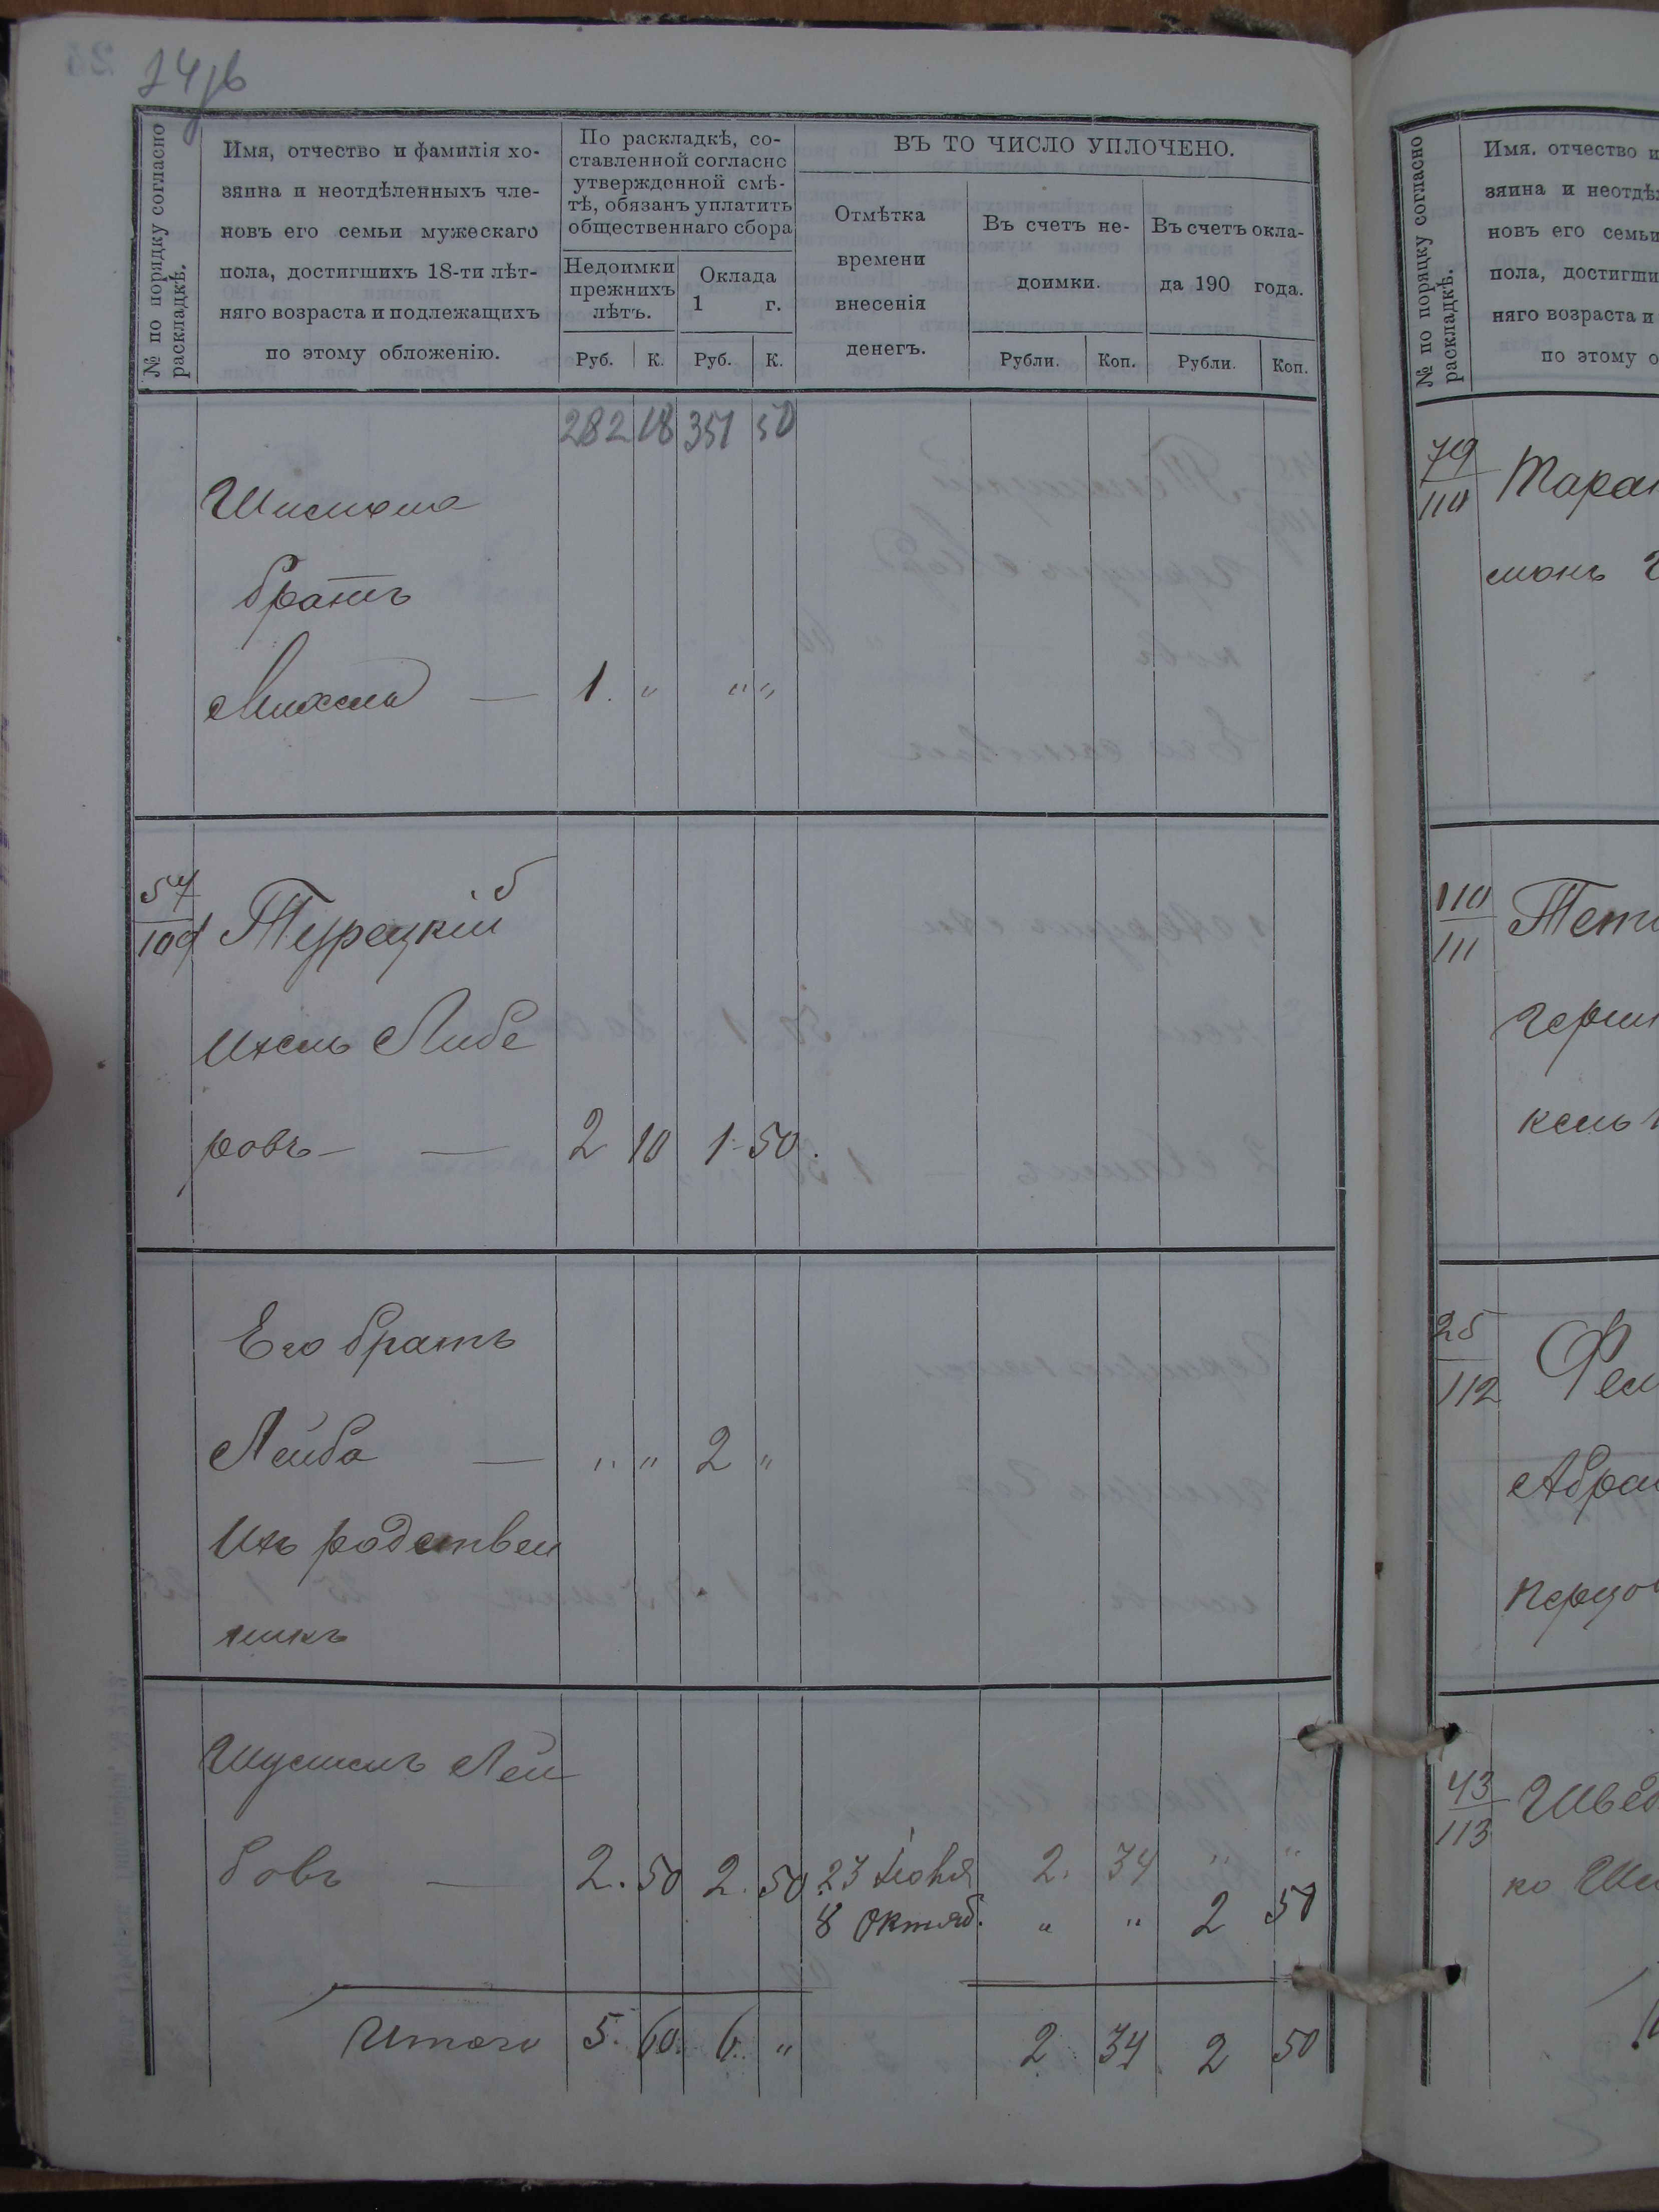 24об
№ по порядку согласно раскладкѣ.
Имя, отчество и фамилія хо-
зяина и неотдѣленныхъ чле-
новъ его семьи мужескаго
пола, достигшихъ 18-ти лѣт-
няго возраста и подлежащихъ
по этому обложенію.
По раскладкѣ, со-
ставленной согласно
утвержденной смѣ-
тѣ, обязанъ уплатить
общественнаго сбора
Недоимки
прежнихъ
лѣтъ.
Оклада
1 г.
Руб. К. Руб. К.
ВЪ ТО ЧИСЛО УПЛОЧЕНО.
Отмѣтка
времени
внесенія
денегъ.
Въ счетъ не-
доимки.
Въ счетъ окла-
да 190 года.
Рубли. Коп. Рубли. Коп.
282 18 351 50
братъ
1. " " "
57
109
Турецкій
Ихель Либе
ровъ — — 2 10 1 50.
Его братъ
Лейба — " " 2 "
Ихъ родствен
никъ
Лей
бовъ — 2. 50 2. 50 23 Іюня 2. 34 " "
8 Октяб. " " 2 50
Итого 5. 60. 6. " 2 34 2 50
№ по порядку согласно раскладкѣ.
Имя, отчество и
зяина и неотдѣ
новъ его семьи
пола, достигши
няго возраста и
по этому о
79
110
Таран
110
111
Герш
25
112
Абрам
Перцов
43
113